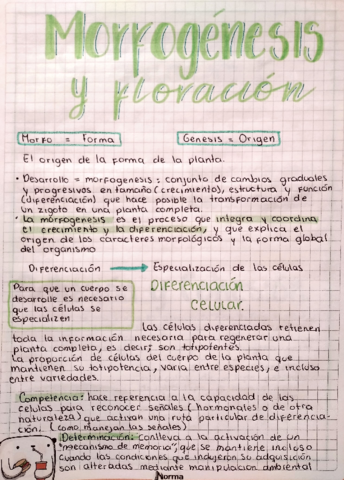 Morfogénesis
y floración
Morfo = Forma    Génesis = Origen
El origen de la forma de la planta.
• Desarrollo = morfogenesis: conjunto de cambios graduales
y progresivos en tamaño (crecimiento), estructura y función
(diferenciación) que hace posible la transformación de
un zigoto en una planta completa.
• La morfogenesis es el proceso que integra y coordina
el crecimiento y la diferenciación, y que explica el
origen de los caracteres morfológicos y la forma global
del organismo
Diferenciación → Especialización de las células
Para que un cuerpo se
desarrolle es necesario
que las células se
especialicen
Diferenciación
celular.
Las células diferenciadas retienen
toda la información necesaria para regenerar una
planta completa, es decir, son totipotentes.
La proporción de células del cuerpo de la planta que
mantienen su totipotencia, varia entre especies, e incluso
entre variedades.
Competencia: hace referencia a la capacidad de las
celulas para reconocer señales (hormonales o de otra
naturaleza) que activan una ruta particular de diferencia-
ción. (como manejan las señales)
Determinación: conlleva a la activación de un
"mecanismo de memoria", que se mantiene incluso
cuando las condiciones que indujeron su adquisición
son alteradas mediante manipulacion ambiental
Norma